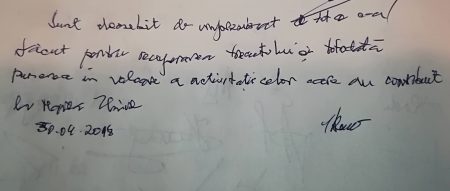 Sunt deosebit de impresionat de tot ce s-a
făcut pentru recuperarea trecutului și totodată
punerea în valoare a activității celor care au contribuit
la
30.04.2018